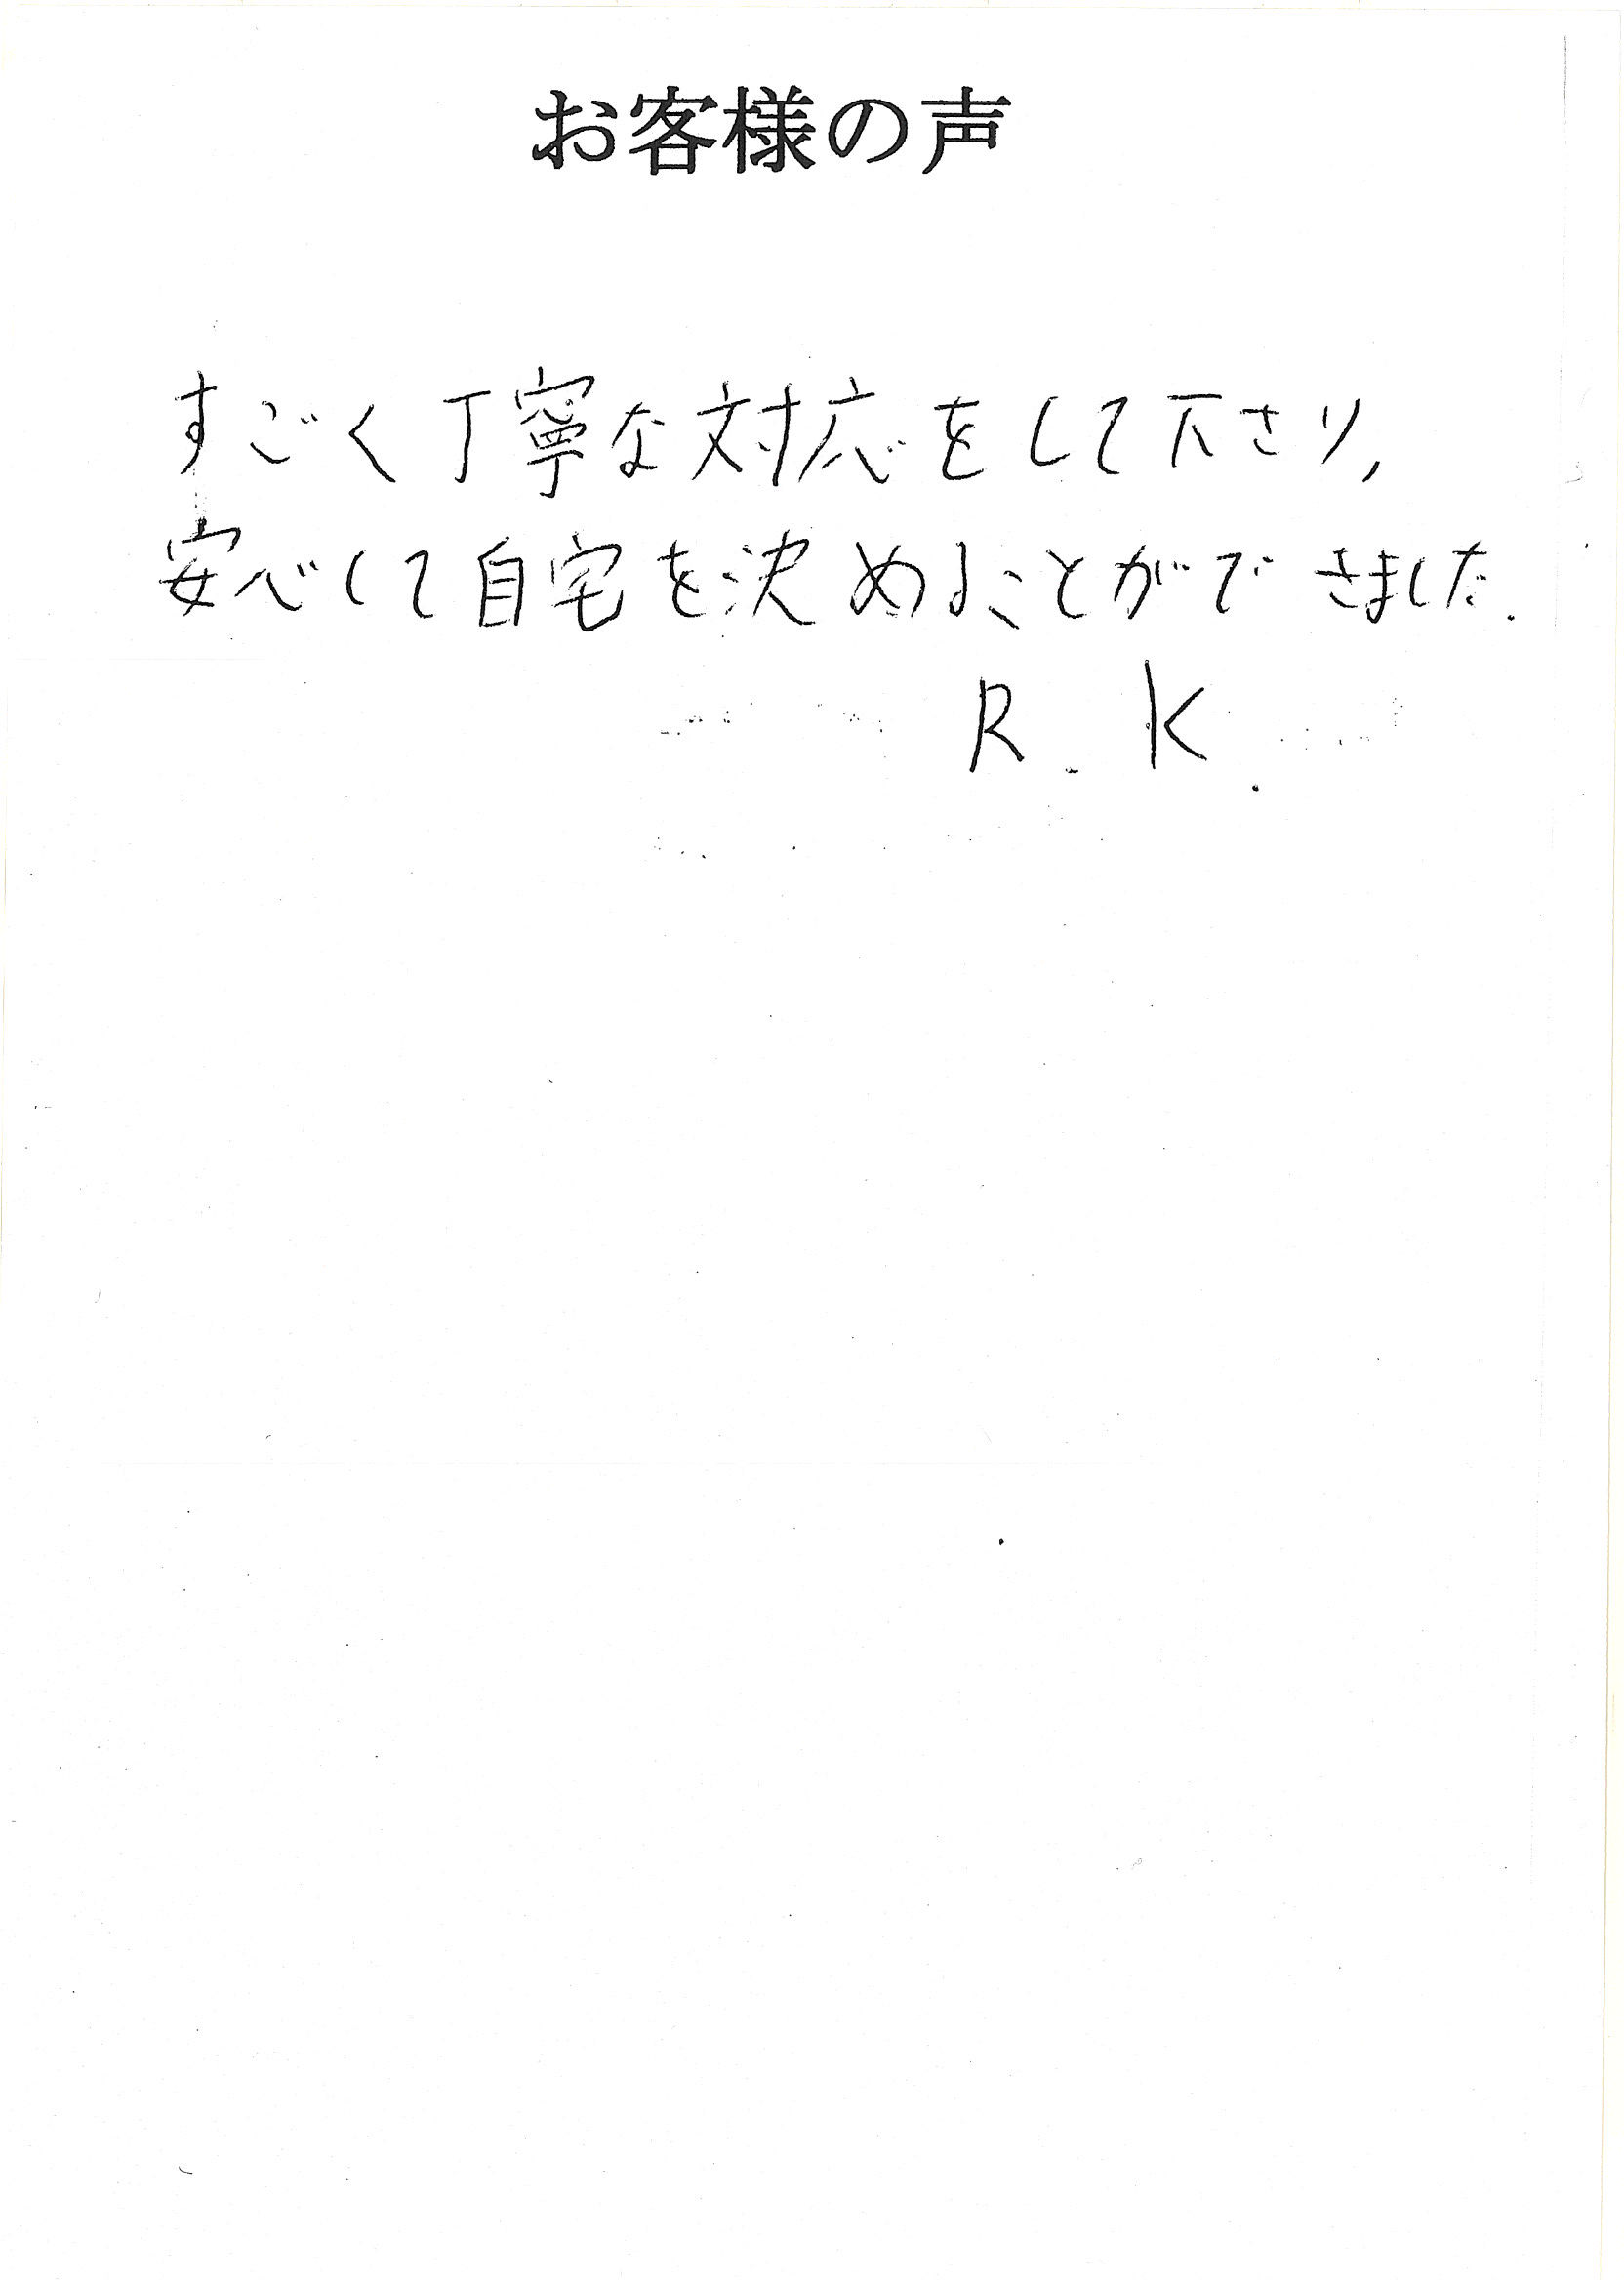 お客様の声
すごく丁寧な対応をして下さり,
安心して自宅を決めることができました.
R. K.